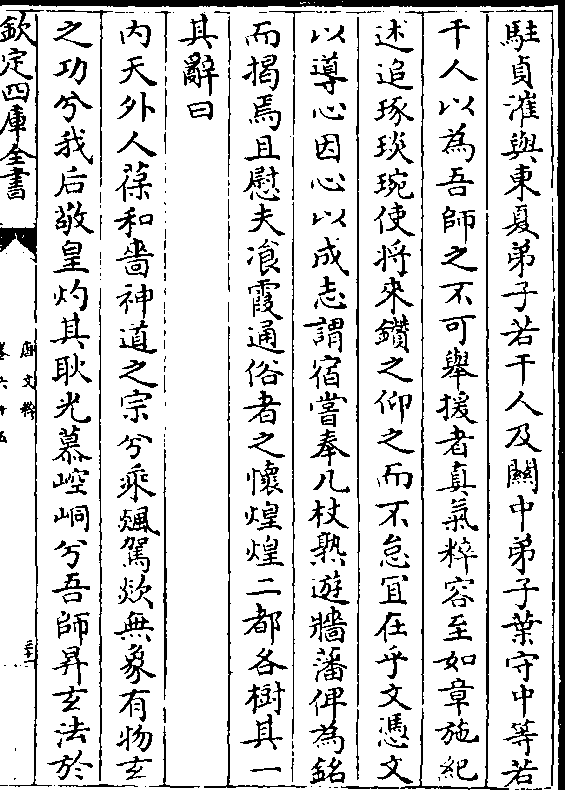 駐貞漼與東夏弟子若干人及闗中弟子葉守中等若
干人以為吾師之不可舉援者真氣粹容至如章施紀
述追琢琰琬使將來鑽之仰之而不怠冝在乎文憑文
以導心因心以成志謂宿嘗奉几杖熟遊牆藩俾為銘
而揭焉且慰夫飡霞通俗者之懷煌煌二都各樹其一
其辭曰
内天外人葆和嗇神道之宗兮乘飈駕欻無象有物玄
之功兮我后敬皇灼其耿光慕崆峒兮吾師昇玄法於
欽定四庫全書
唐文粹
卷六十五